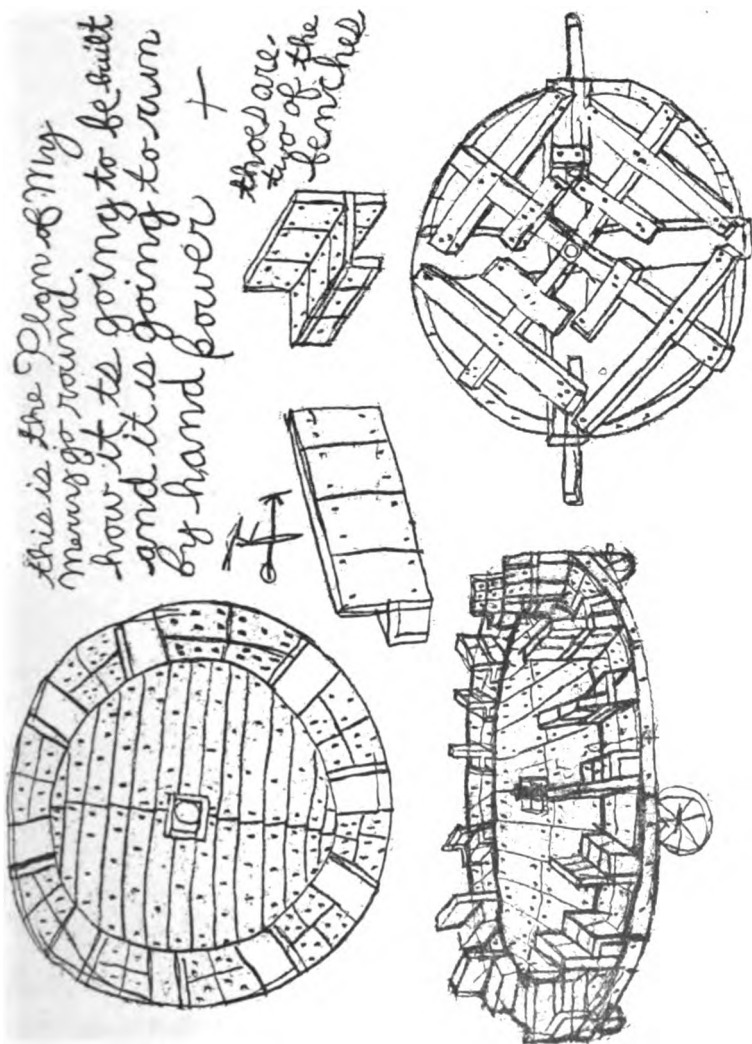 this is the Plan of My
merry go round.
how it is going to be built
and it is going to run
by hand power
+
thoes are
two of the
benches